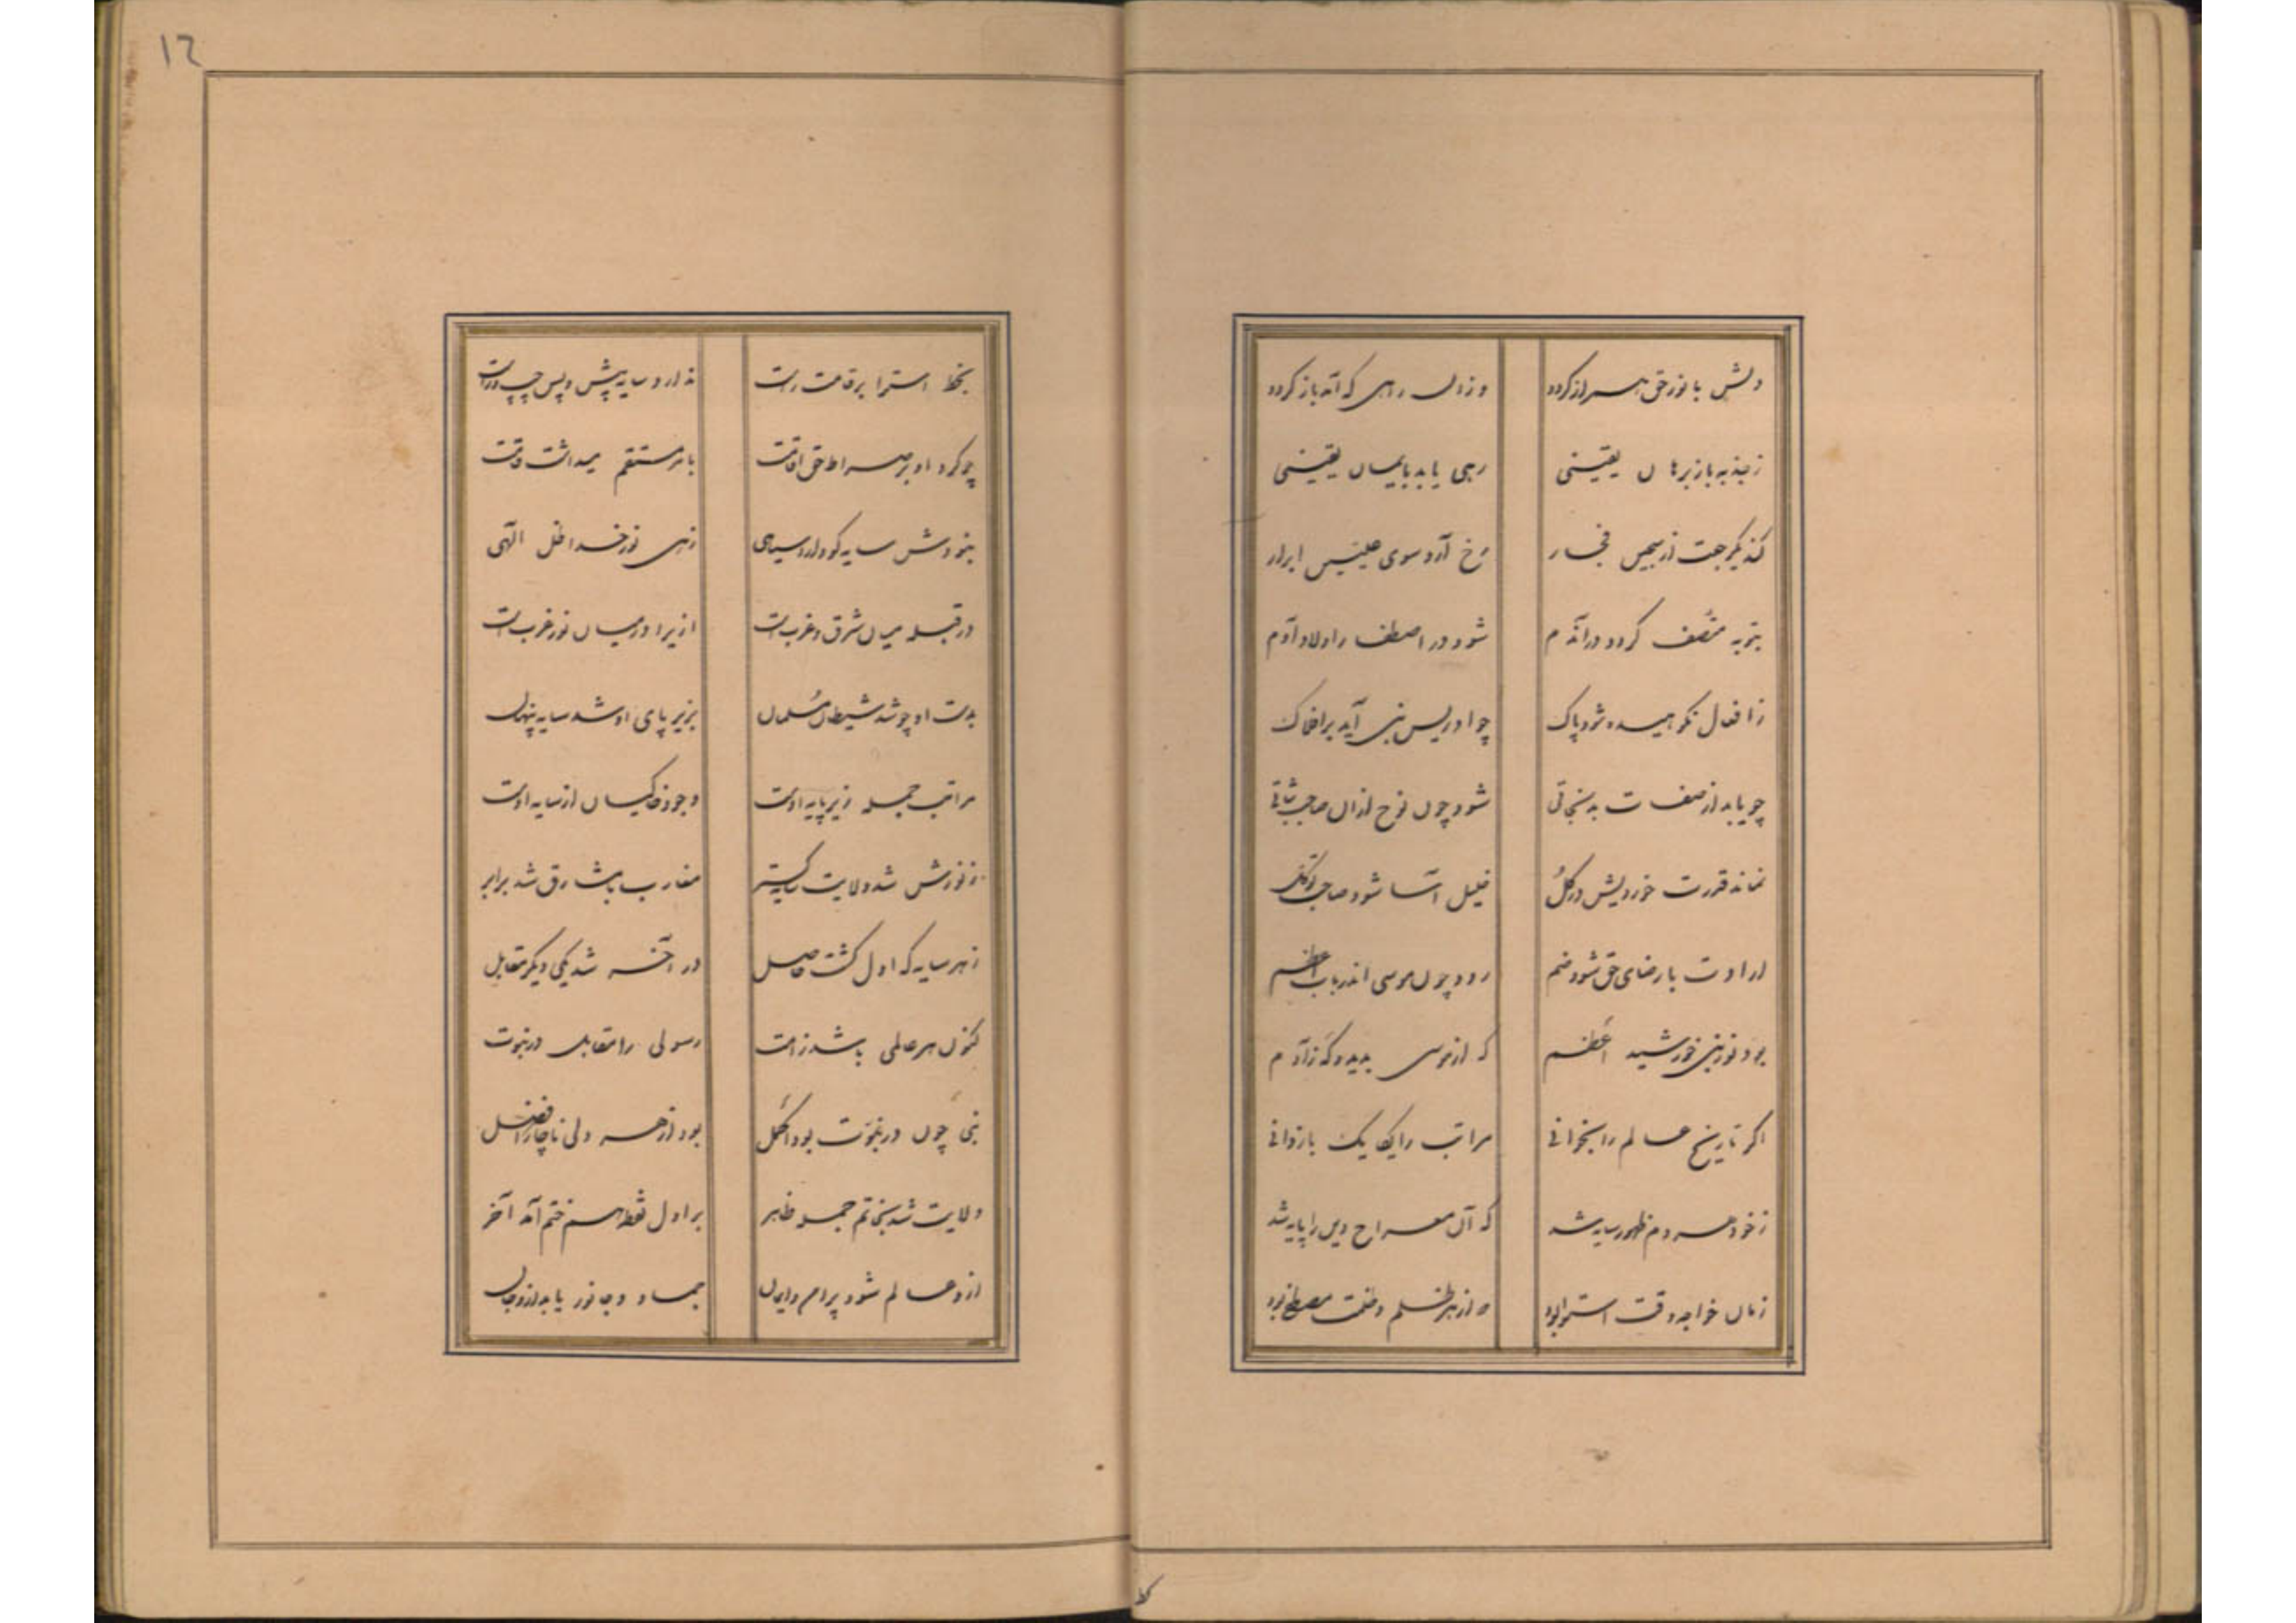 ۱۲
دلش با نور حق همراز گردد
وزان راهی که آمد باز گردد
ز جذبه یا ز برهان یقینی
رهی یابد بایمان یقینی
کند یک رجعت از سجین فجار
رخ آرد سوی علیین ابرار
بتوبه متصف گردد در آندم
شود در اصطفا ز اولاد آدم
ز افعال نکوهیده شود پاک
چو ادریس نبی آید بر افلاک
چو یابد از صفات بد نجاتی
شود چون نوح از آن صاحب ثباتی
نماند قدرت خویش در کل
خلیل آسا شود صاحب توکل
ارادت با رضای حق شود ضم
رود چون موسی اندر باب اعظم
بود نور نبی خورشید اعظم
که از موسی پدید و گه ز آدم
اگر تاریخ عالم را بخوانی
مراتب را یکایک باز دانی
ز خور هر دم ظهور سایه شد
که آن معراج دین را پایه شد
زمان خواجه وقت استوا بود
که از هر ظل و ظلمت مصطفی بود
ط
بخط استوا بر قامت راست
ندارد سایه پیش و پس چپ و راست
چو کرد او بر صراط حق اقامت
بامر استقم میداشت قامت
نبودش سایه کو دارد سیاهی
زهی نور خدا ظل الهی
ورا قبله میان شرق و غرب است
ازیرا در میان نور غرب است
بدست او چو شد شیطان مسلمان
بزیر پای او شد سایه پنهان
مراتب جمله زیر پایه اوست
وجود خاکیان از سایه اوست
ز نورش شد ولایت سایه گستر
مغارب با مشارق شد برابر
ز هر سایه که اول گشت حاصل
در آخر شد یکی دیگر مقابل
کنون هر عالمی باشد ز امت
رسولی را مقابل در نبوت
نبی چون در نبوت بود اکمل
بود از هر ولی ناچار افضل
ولایت شد بخاتم جمله ظاهر
بر اول نقطه هم ختم آمد آخر
ازو عالم شود پر امن و ایمان
جماد و جانور یابد ازو جان